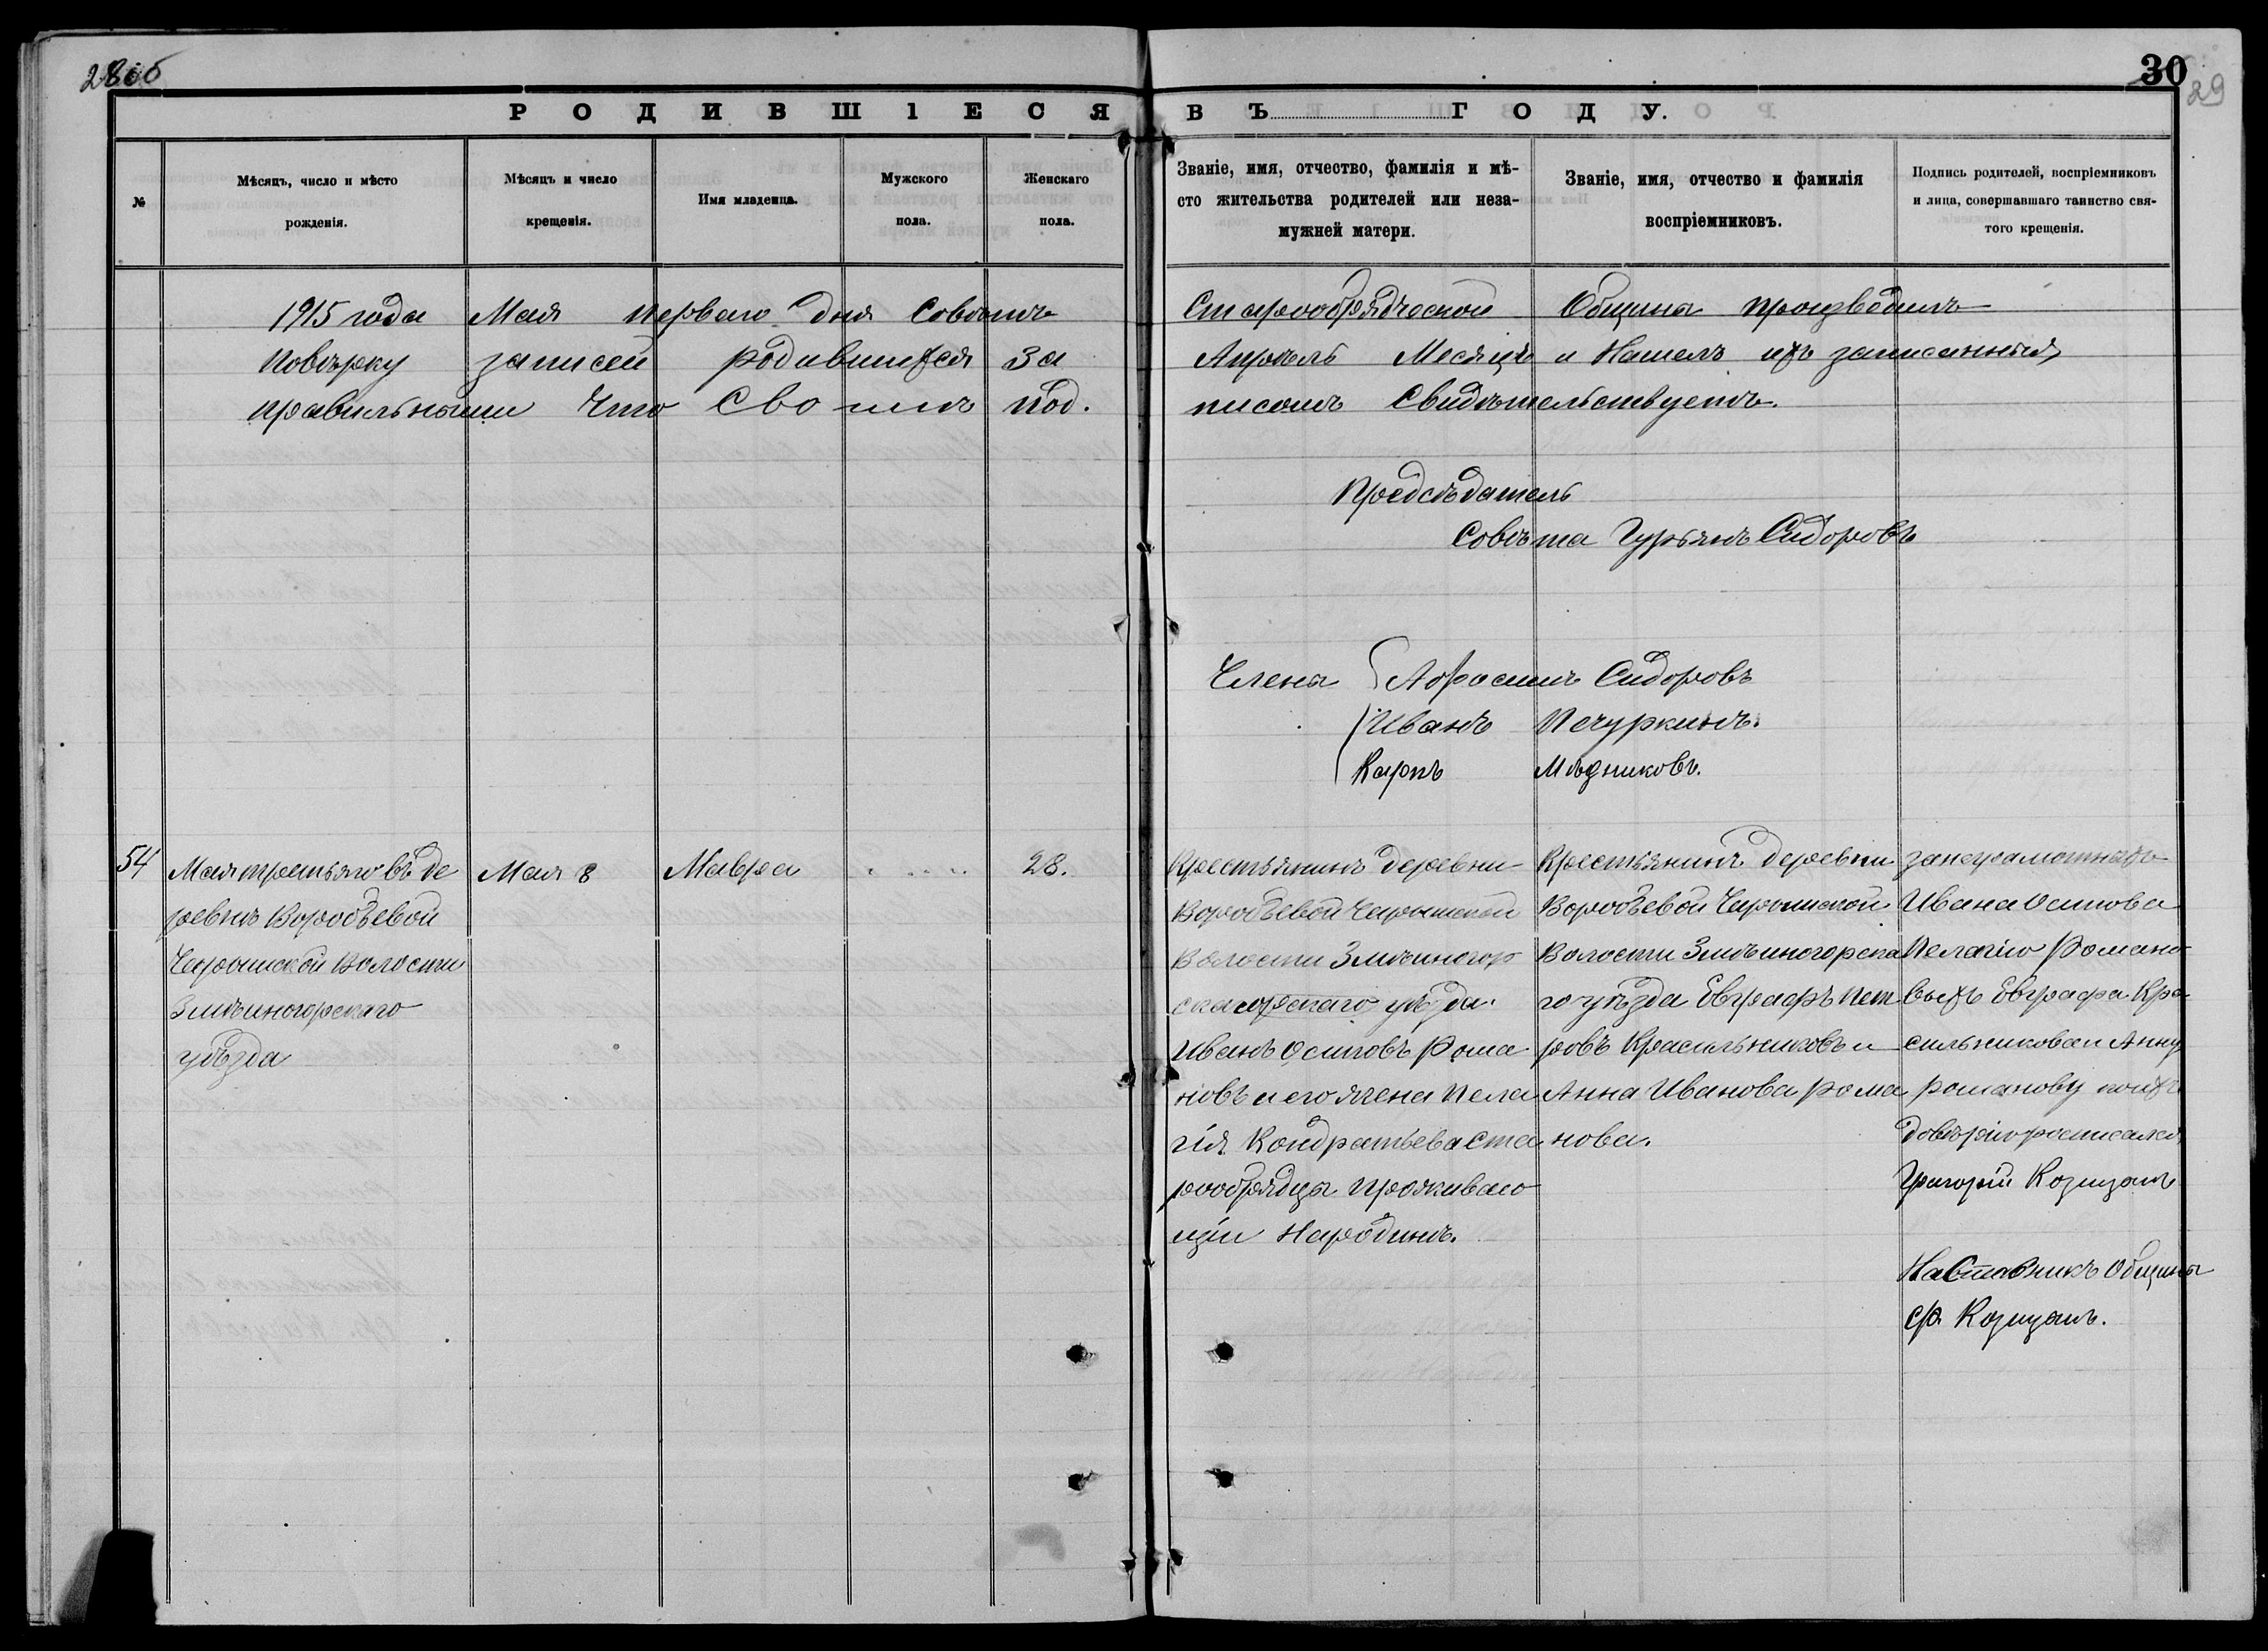 28об
30
29
РОДИВШІЕСЯ ВЪ ГОДУ.
№
Мѣсяцъ, число и мѣсто
рожденія.
Мѣсяцъ и число
крещенія.
Имя младенца.
Мужского
пола.
Женскаго
пола.
Званіе, имя, отчество, фамилія и мѣ-
сто жительства родителей или неза-
мужней матери.
Званіе, имя, отчество и фамилія
воспріемниковъ.
Подпись родителей, воспріемниковъ
и лица, совершавшаго таинство свя-
того крещенія.
1915 года Мая перваго дня Совѣтъ Старообрядческой Общины производилъ
повѣрку записей родившихся за Апрѣль Месяцъ и Нашелъ ихъ записанныя
правильными Что Сво имъ под. писомъ Свидѣтельствуетъ.
Предсѣдатель
Совѣта Гурьянъ Сидоровъ
Члена Афросимъ Сидоровъ
Иванъ Печуркинъ.
Карпъ Мѣдниковъ.
54
Мая третьяго въ де
ревнѣ Воробьевой
Чарышской Волости
Змѣиногорскаго
уѣзда
Мая 8
Мавра
28.
Крестьянинъ деревни
Воробьевой Чарышской
Волости Змѣиногор
скагорскаго уѣзда.
Иванъ Осиповъ Рома
новъ и его жена Пела
гія Кондратьева Ста
рообрядцы проживаю
щіи Народинѣ.
Крестьянинъ деревни
Воробьевой Чарышской
Волости Змѣиногорска
го уѣзда Евграфъ Пет
ровъ Красильниковъ и
Анна Иванова Рома
нова.
занеграмотныхъ
Ивана Осипова
Пелагію Романо
выхъ Евграфа Кра
сильникова и Анну
Романову поихъ
довѣрію росписался
Григорій Козицынъ
Наставникъ Общины
Козицынъ.